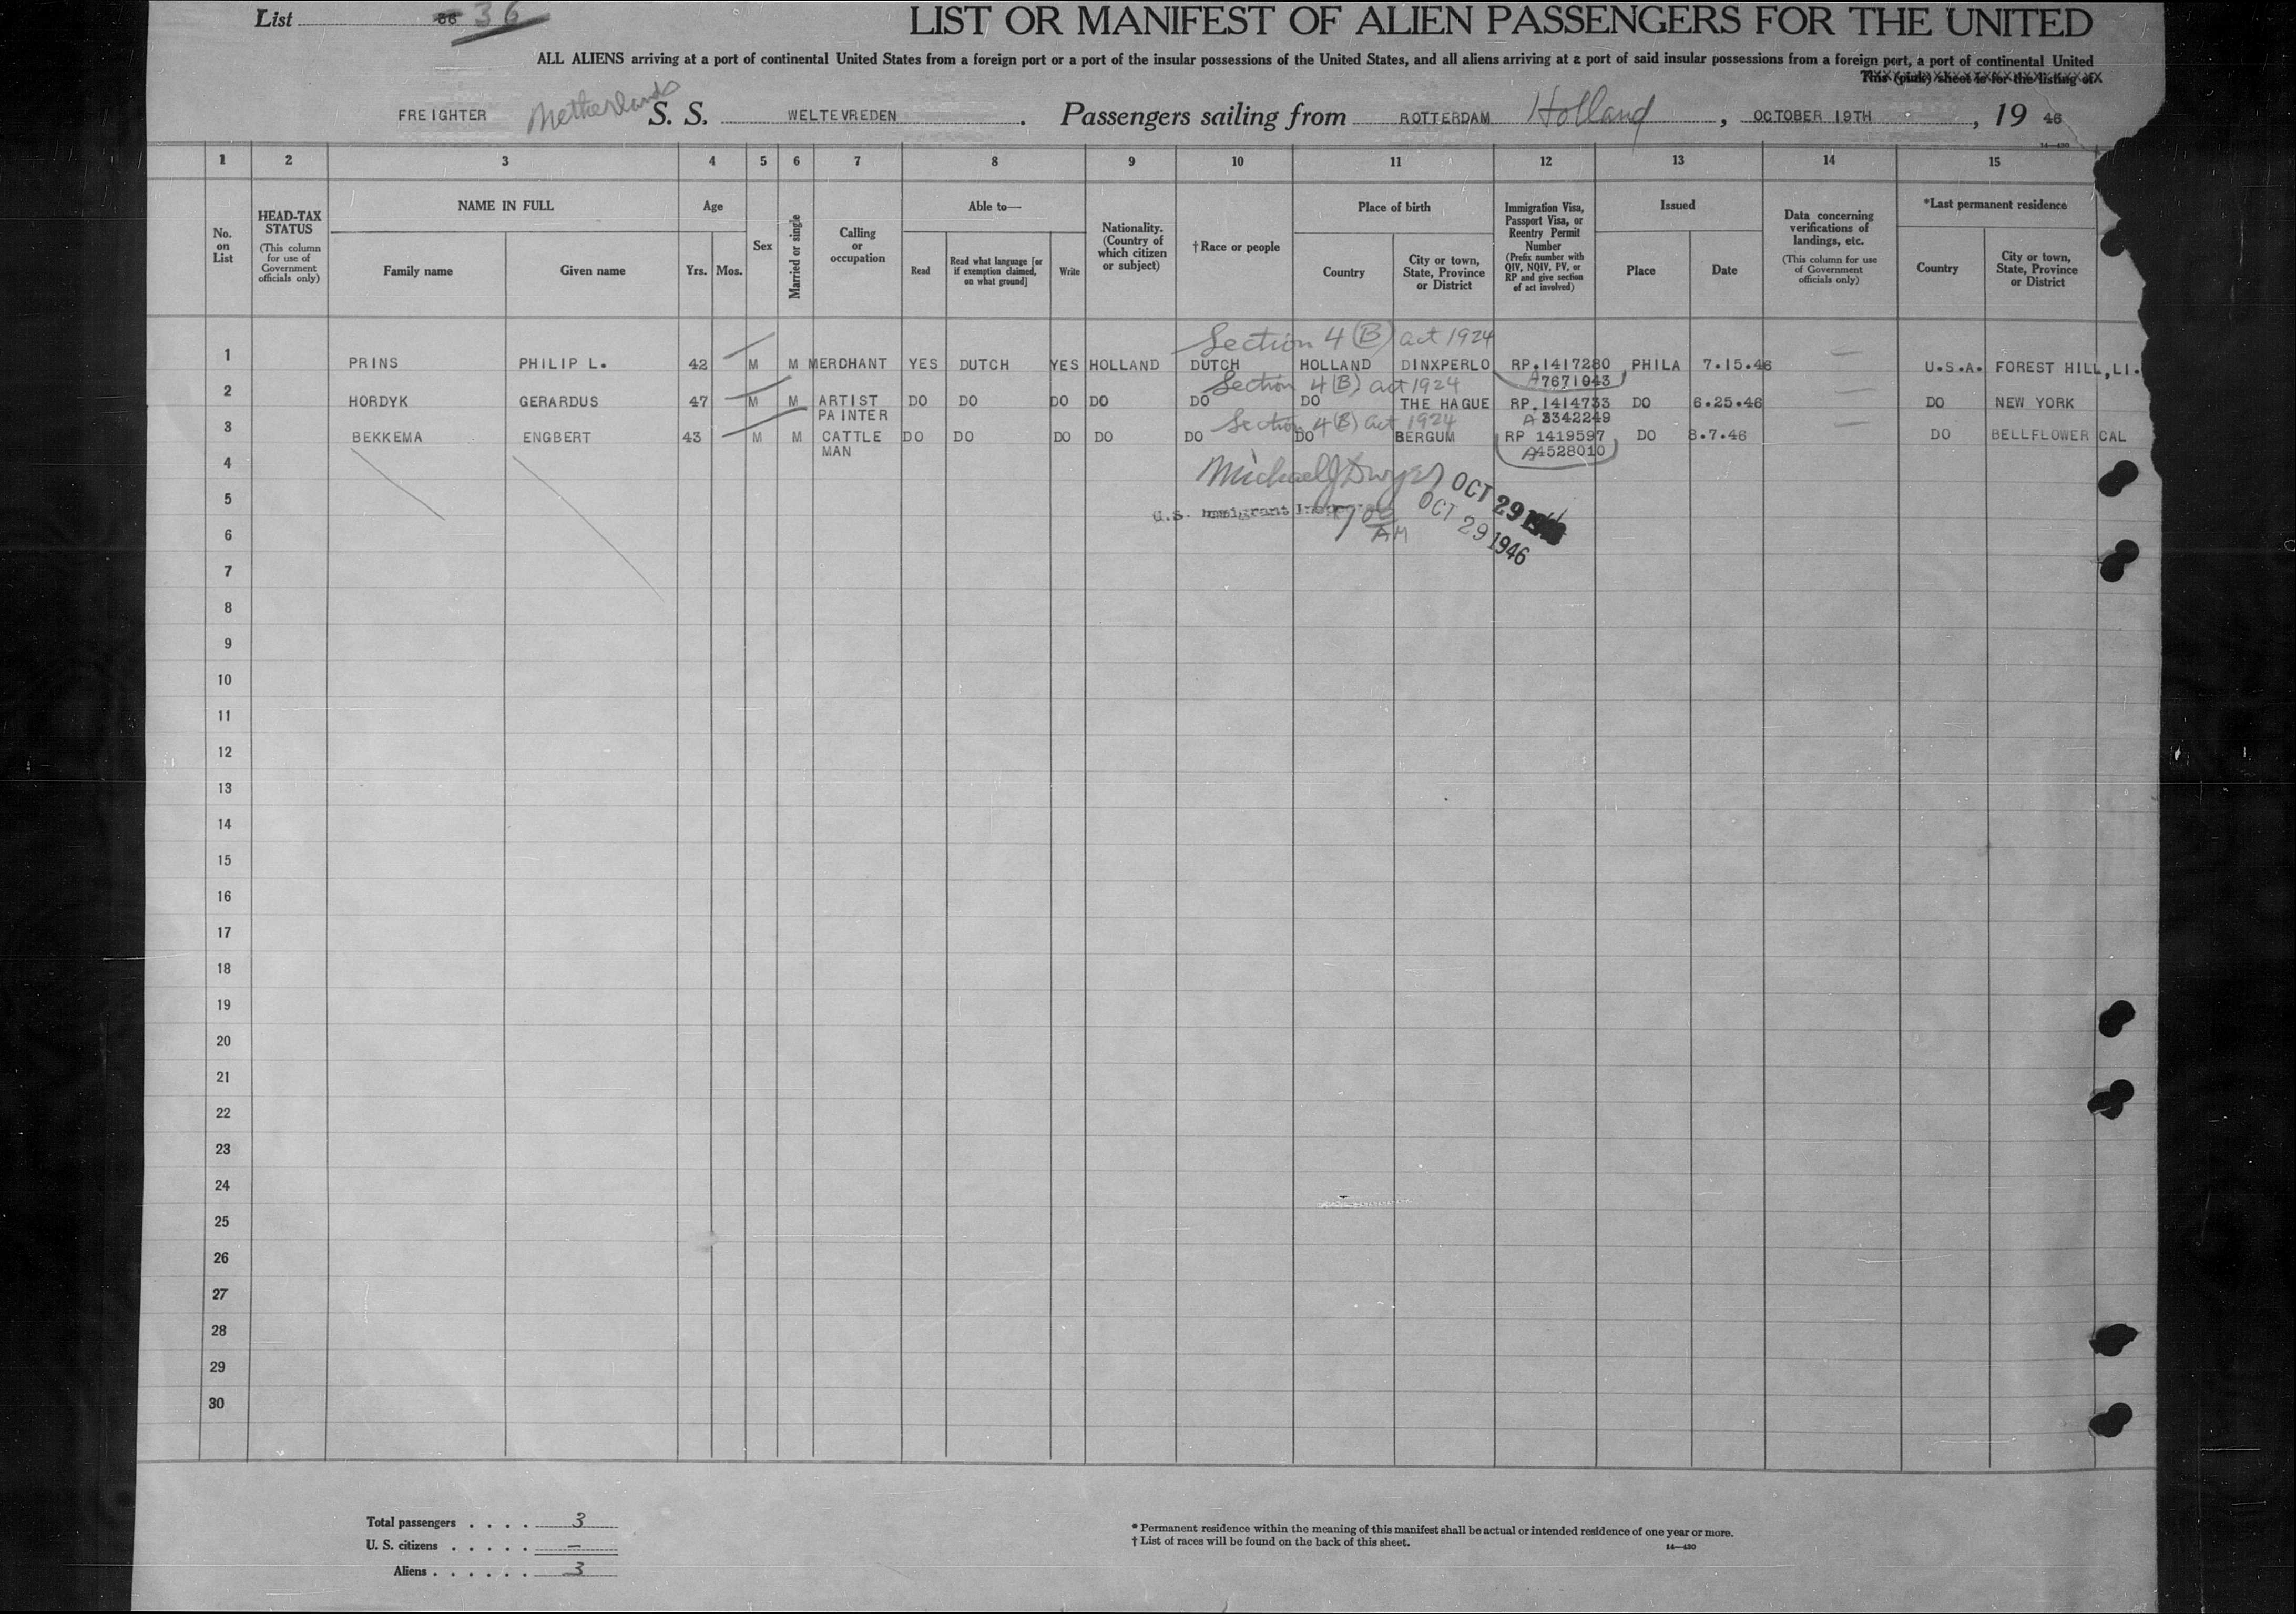 List 36 36
LIST OR MANIFEST OF ALIEN PASSENGERS FOR THE UNITED
ALL ALIENS arriving at a port of continental United States from a foreign port or a port of the insular possessions of the United States, and all aliens arriving at a port of said insular possessions from a foreign port, a port of continental United
This (pink) sheet is for the listing of
FREIGHTER Netherlands S. S. WELTEVREDEN . Passengers sailing from ROTTERDAM Holland , OCTOBER 19TH , 19 46
14—430
1 2 3 4 5 6 7 8 9 10 11 12 13 14 15
No. on List
HEAD-TAX STATUS
(This column for use of Government officials only)
NAME IN FULL
Family name Given name
Age
Yrs. Mos.
Sex
Married or single
Calling or occupation
Able to—
Read
Read what language [or if exemption claimed, on what ground]
Write
Nationality. (Country of which citizen or subject)
† Race or people
Place of birth
Country
City or town, State, Province or District
Immigration Visa, Passport Visa, or Reentry Permit Number
(Prefix number with QIV, NQIV, PV, or RP and give section of act involved)
Issued
Place Date
Data concerning verifications of landings, etc.
(This column for use of Government officials only)
*Last permanent residence
Country
City or town, State, Province or District
Section 4 (B) act 1924
1 PRINS PHILIP L. 42 M M MERCHANT YES DUTCH YES HOLLAND DUTCH HOLLAND DINXPERLO RP.1417280 PHILA 7.15.46 — U.S.A. FOREST HILL, LI.
Section 4 (B) act 1924 A7671043
2 HORDYK GERARDUS 47 M M ARTIST DO DO DO DO DO DO THE HAGUE RP.1414733 DO 6.25.46 — DO NEW YORK
PAINTER Section 4 (B) act 1924 A 3342249
3 BEKKEMA ENGBERT 43 M M CATTLE DO DO DO DO DO DO BERGUM RP 1419597 DO 8.7.46 — DO BELLFLOWER CAL
MAN A4528010
4
Michael J Dwyer OCT 29 1946
5
U.S. Immigrant OCT 29 1946
6
AM
7
8
9
10
11
12
13
14
15
16
17
18
19
20
21
22
23
24
25
26
27
28
29
30
Total passengers . . . . 3
U. S. citizens . . . . . —
Aliens . . . . . . 3
* Permanent residence within the meaning of this manifest shall be actual or intended residence of one year or more.
† List of races will be found on the back of this sheet.
14—430